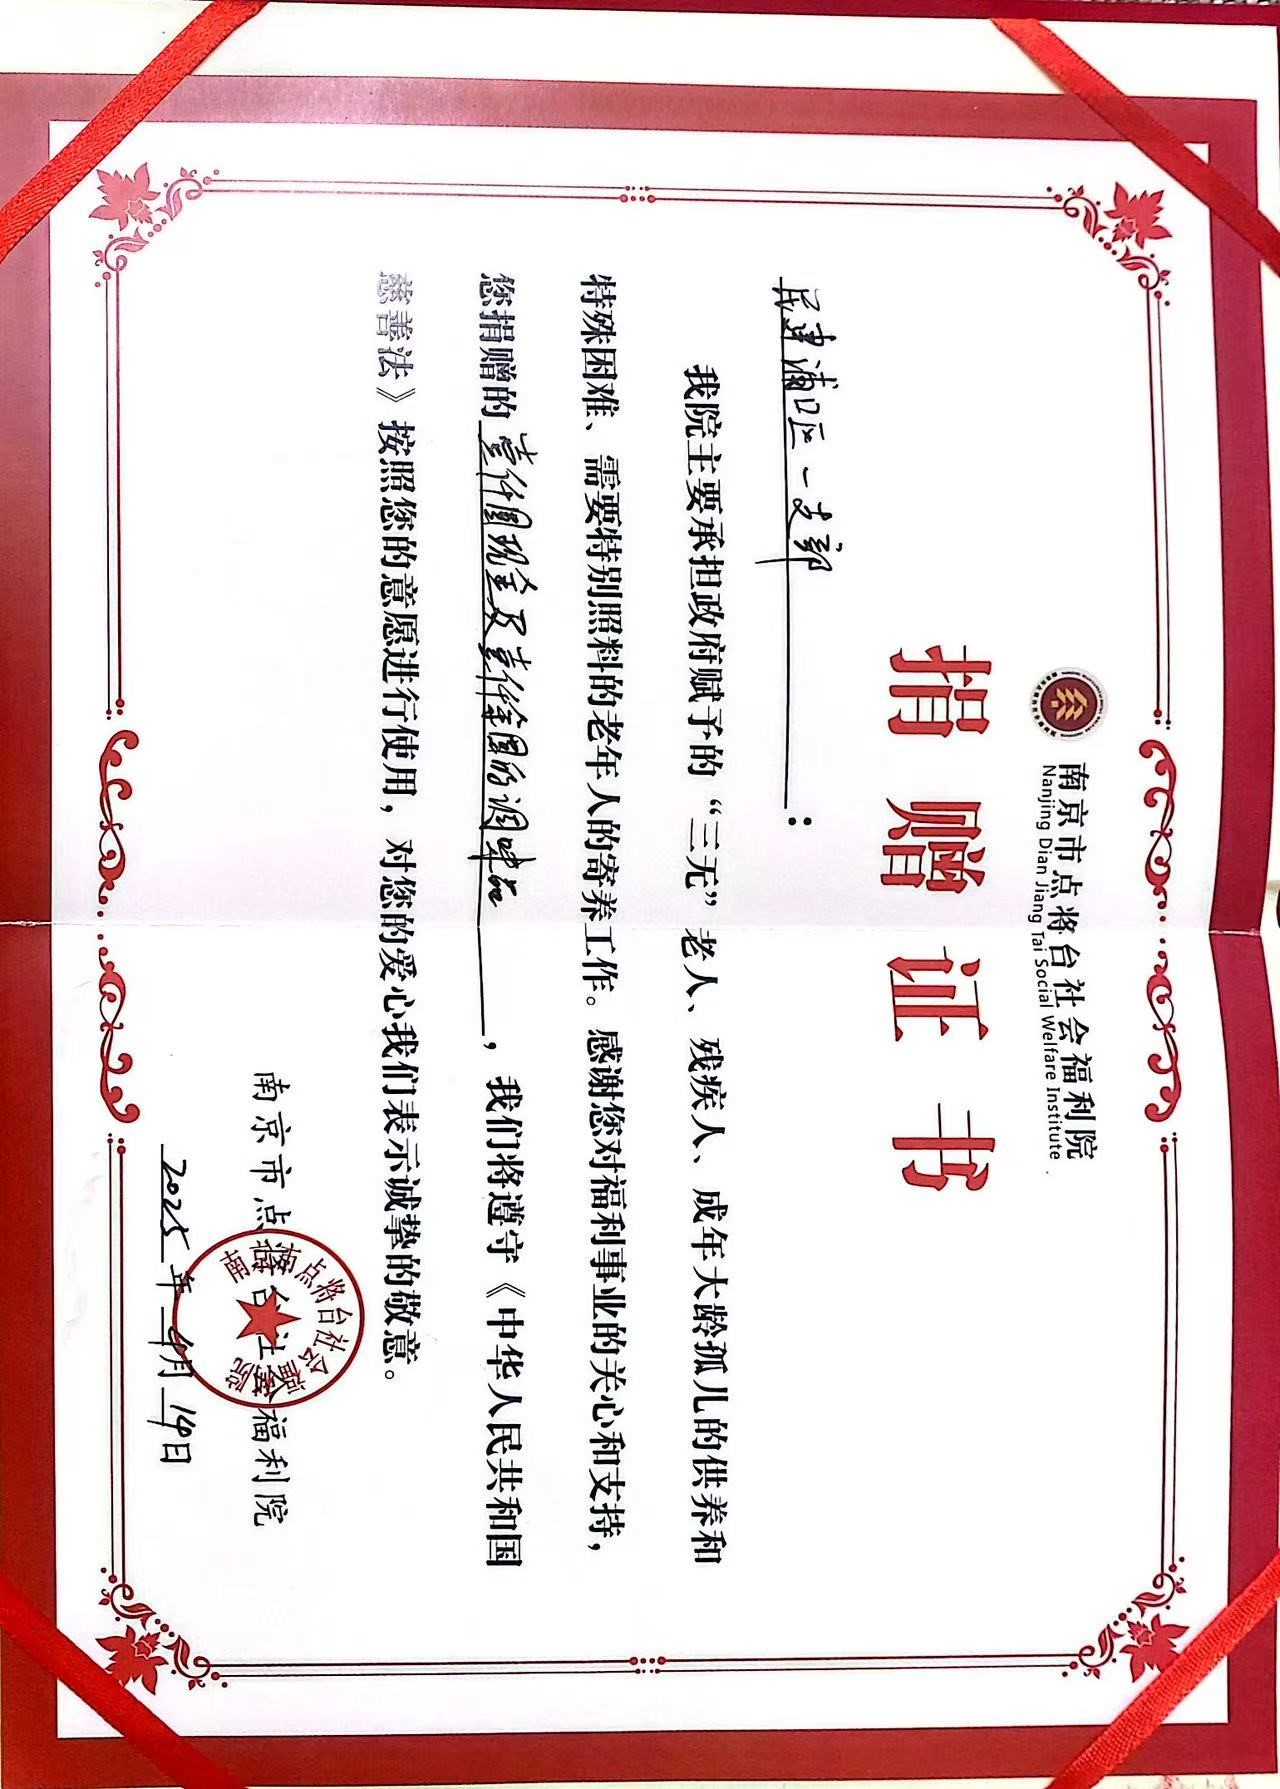 南京市点将台社会福利院
Nanjing Dian Jiang Tai Social Welfare Institute
捐赠证书
民建浦口区一支部：
我院主要承担政府赋予的“三无”老人、残疾人、成年大龄孤儿的供养和
特殊困难、需要特别照料的老年人的寄养工作。感谢您对福利事业的关心和支持，
您捐赠的壹仟圆现金及壹仟余圆的调味品，我们将遵守《中华人民共和国
慈善法》按照您的意愿进行使用，对您的爱心我们表示诚挚的敬意。
南京市点将台社会福利院
2025年9月14日
南京市点将台社会福利院